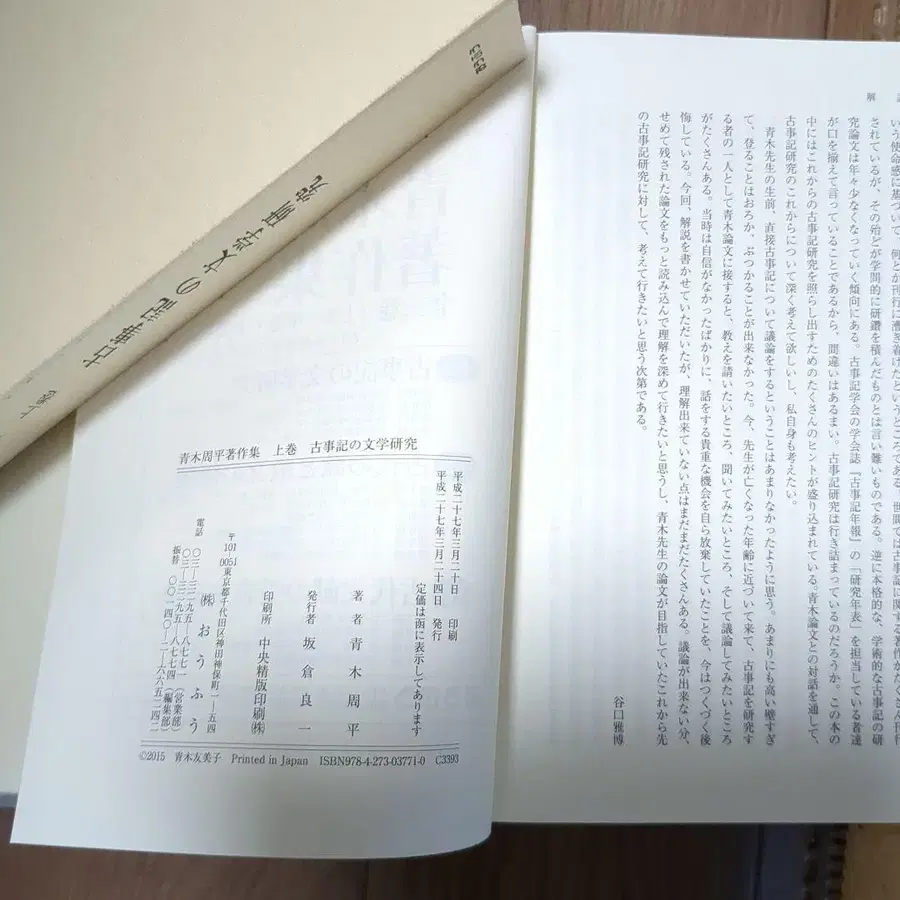 解
いう使命感に基づいて、何とか刊行に漕ぎ着けたというところである。世間では古事記に関する著作がたくさん刊行
されているが、その殆どが学問的に研鑽を積んだものとは言い難いものである。逆に本格的な、学術的な古事記の研
究論文は年々少なくなっていく傾向にある。古事記学会の学会誌『古事記年報』の「研究年表」を担当している者達
が口を揃えて言っていることであるから、間違いはあるまい。古事記研究は行き詰まっているのだろうか。この本の
中にはこれからの古事記研究を照らし出すためのたくさんのヒントが盛り込まれている。青木論文との対話を通して、
古事記研究のこれからについて深く考えて欲しいし、私自身も考えたい。
青木先生の生前、直接古事記について議論をするということはあまりなかったように思う。あまりにも高い壁すぎ
て、登ることはおろか、ぶつかることが出来なかった。今、先生が亡くなった年齢に近づいて来て、古事記を研究す
る者の一人として青木論文に接すると、教えを請いたいところ、聞いてみたいところ、そして議論してみたいところ
がたくさんある。当時は自信がなかったばかりに、話をする貴重な機会を自ら放棄していたことを、今はつくづく後
悔している。今回、解説を書かせていただいたが、理解出来ていない点はまだまだたくさんある。議論が出来ない分、
せめて残された論文をもっと読み込んで理解を深めて行きたいと思うし、青木先生の論文が目指していたこれから先
の古事記研究に対して、考えて行きたいと思う次第である。
谷口雅博
古事記の文学研究
おうふう
青木周平著作集 上巻 古事記の文学研究
平成二十七年三月二十日 印刷
平成二十七年三月二十四日 発行
定価は函に表示してあります
著者 青木周平
発行者 坂倉良一
印刷所 中央精版印刷㈱
〒101-0051 東京都千代田区神田神保町一―五四
㈱おうふう
電話 〇三―三二九五―八七七一(営業部)
〇三―三二九五―八七七四(編集部)
振替 〇〇一四〇―二―六六五二四二
©2015 青木友美子 Printed in Japan ISBN978-4-273-03771-0 C3393